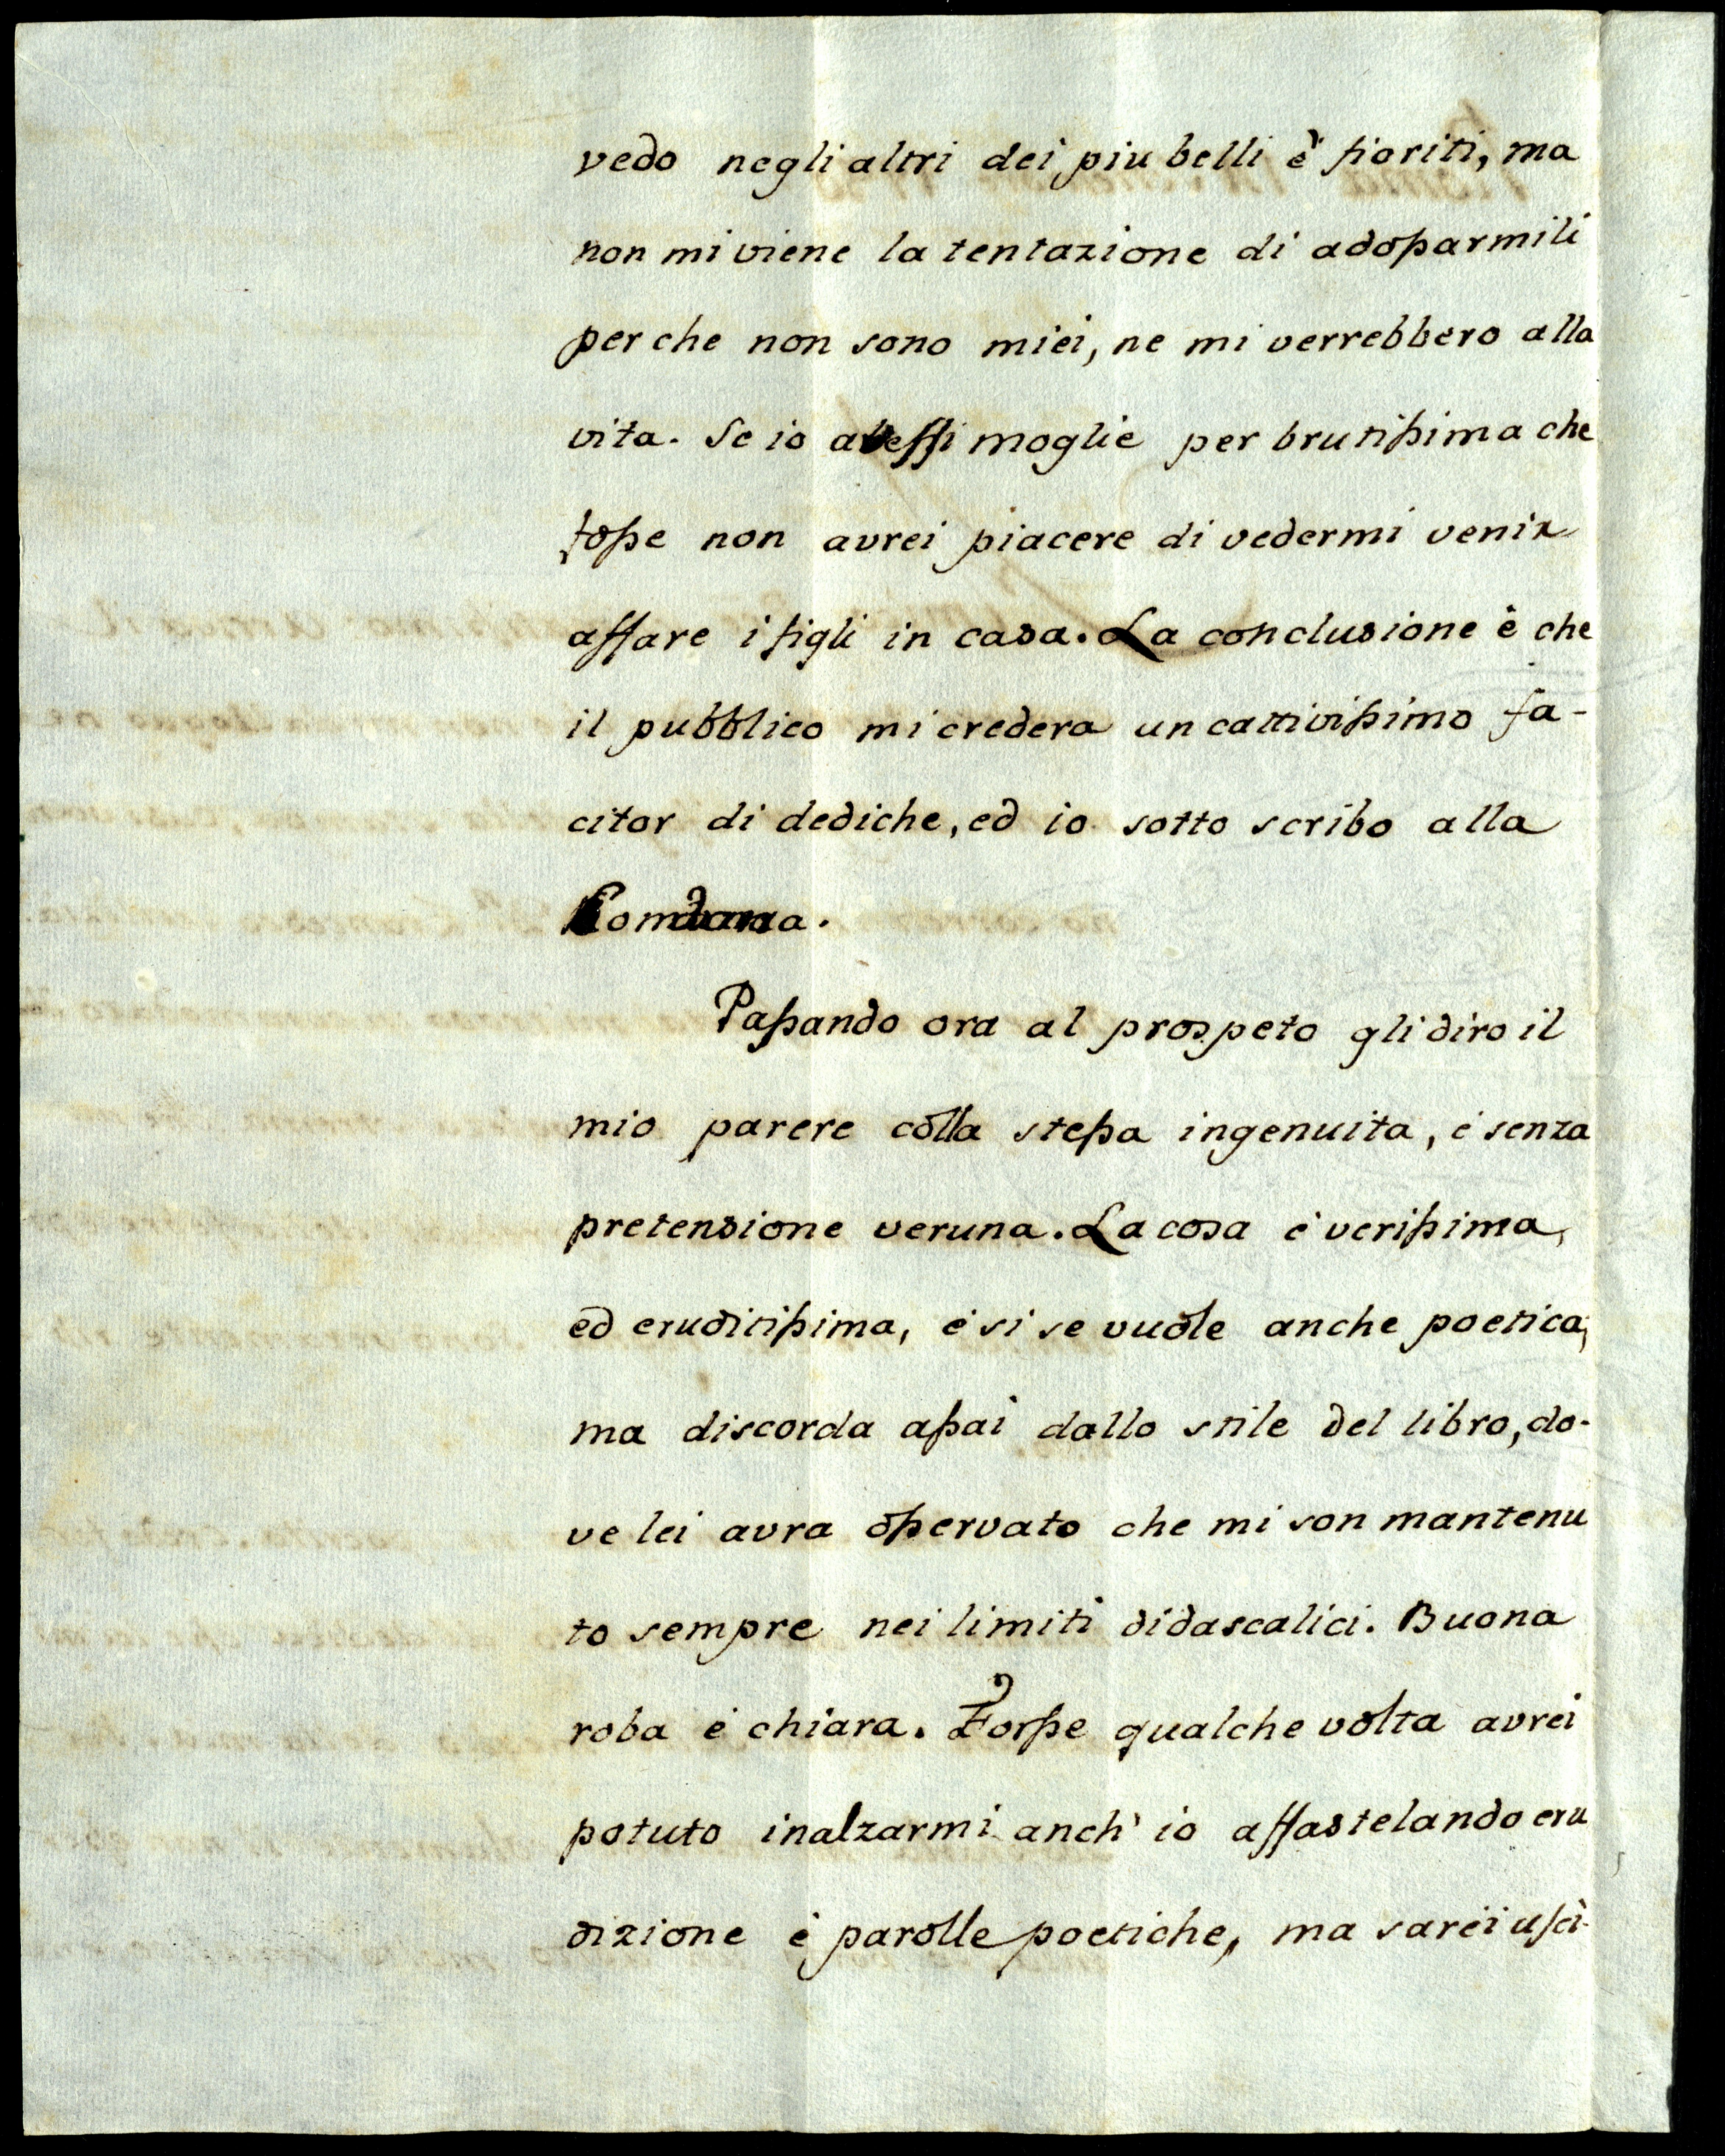 vedo negli altri dei piu belli è fioriti, ma
non mi viene la tentazione di adossarmili
per che non sono miei, ne mi verrebbero alla
vita. Se io avessi moglie per brutissima che
fosse non avrei piacere di vedermi venir
affare i figli in casa. La conclusione è che
il pubblico mi credera un cattivissimo fa-
citor di dediche, ed io sotto scribo alla
Passando ora al prospeto gli diro il
mio parere colla stessa ingenuita, e senza
pretensione veruna. La cosa è verissima,
ed eruditissima, e si se vuole anche poetica,
ma discorda assai dallo stile del libro, do-
ve lei avra osservato che mi son mantenu
to sempre nei limiti didascalici. Buona
roba e chiara. Forsse qualche volta avrei
potuto inalzarmi anch' io affastelando eru
dizione è parolle poetiche, ma sarei usci-